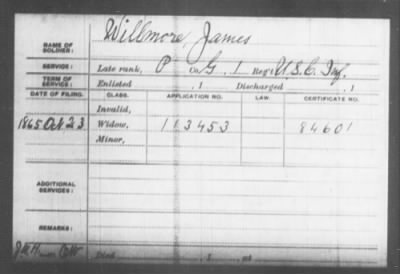 Willmore, James
NAME OF SOLDIER:
SERVICE: Late rank, P Co. G, 1 Reg't U.S.C. Inf.
TERM OF SERVICE: Enlisted , 1 Discharged , 1
DATE OF FILING. CLASS. APPLICATION NO. LAW. CERTIFICATE NO.
Invalid,
1865 Oct 23 Widow, 113453 84601
Minor,
ADDITIONAL SERVICES:
REMARKS:
Died , 1 , at